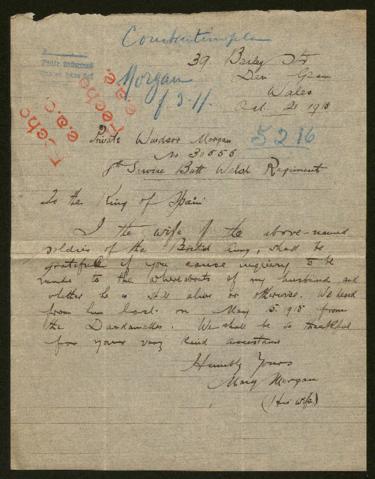 Constantinople
39 Bailey Str
Morgan
Wales
Oct. 21 1915
f 3.11.
Fecha
e.a.c.
Fecha
e.a.e.
Private Windsor Morgan
5216
No 30856
8th Service Batt Welsh Regiment
To the King of Spain
I the wife of the above-named
soldier of the British Army, shall be
grateful if you cause inquiry to be
made to the whereabouts of my husband and
whether he is still alive or otherwise. We heard
from him last on May 5 1915 from
the Dardanelles. We shall be so thankful
for your very kind assistance
Humbly Yours
Mary Morgan
(His wife)